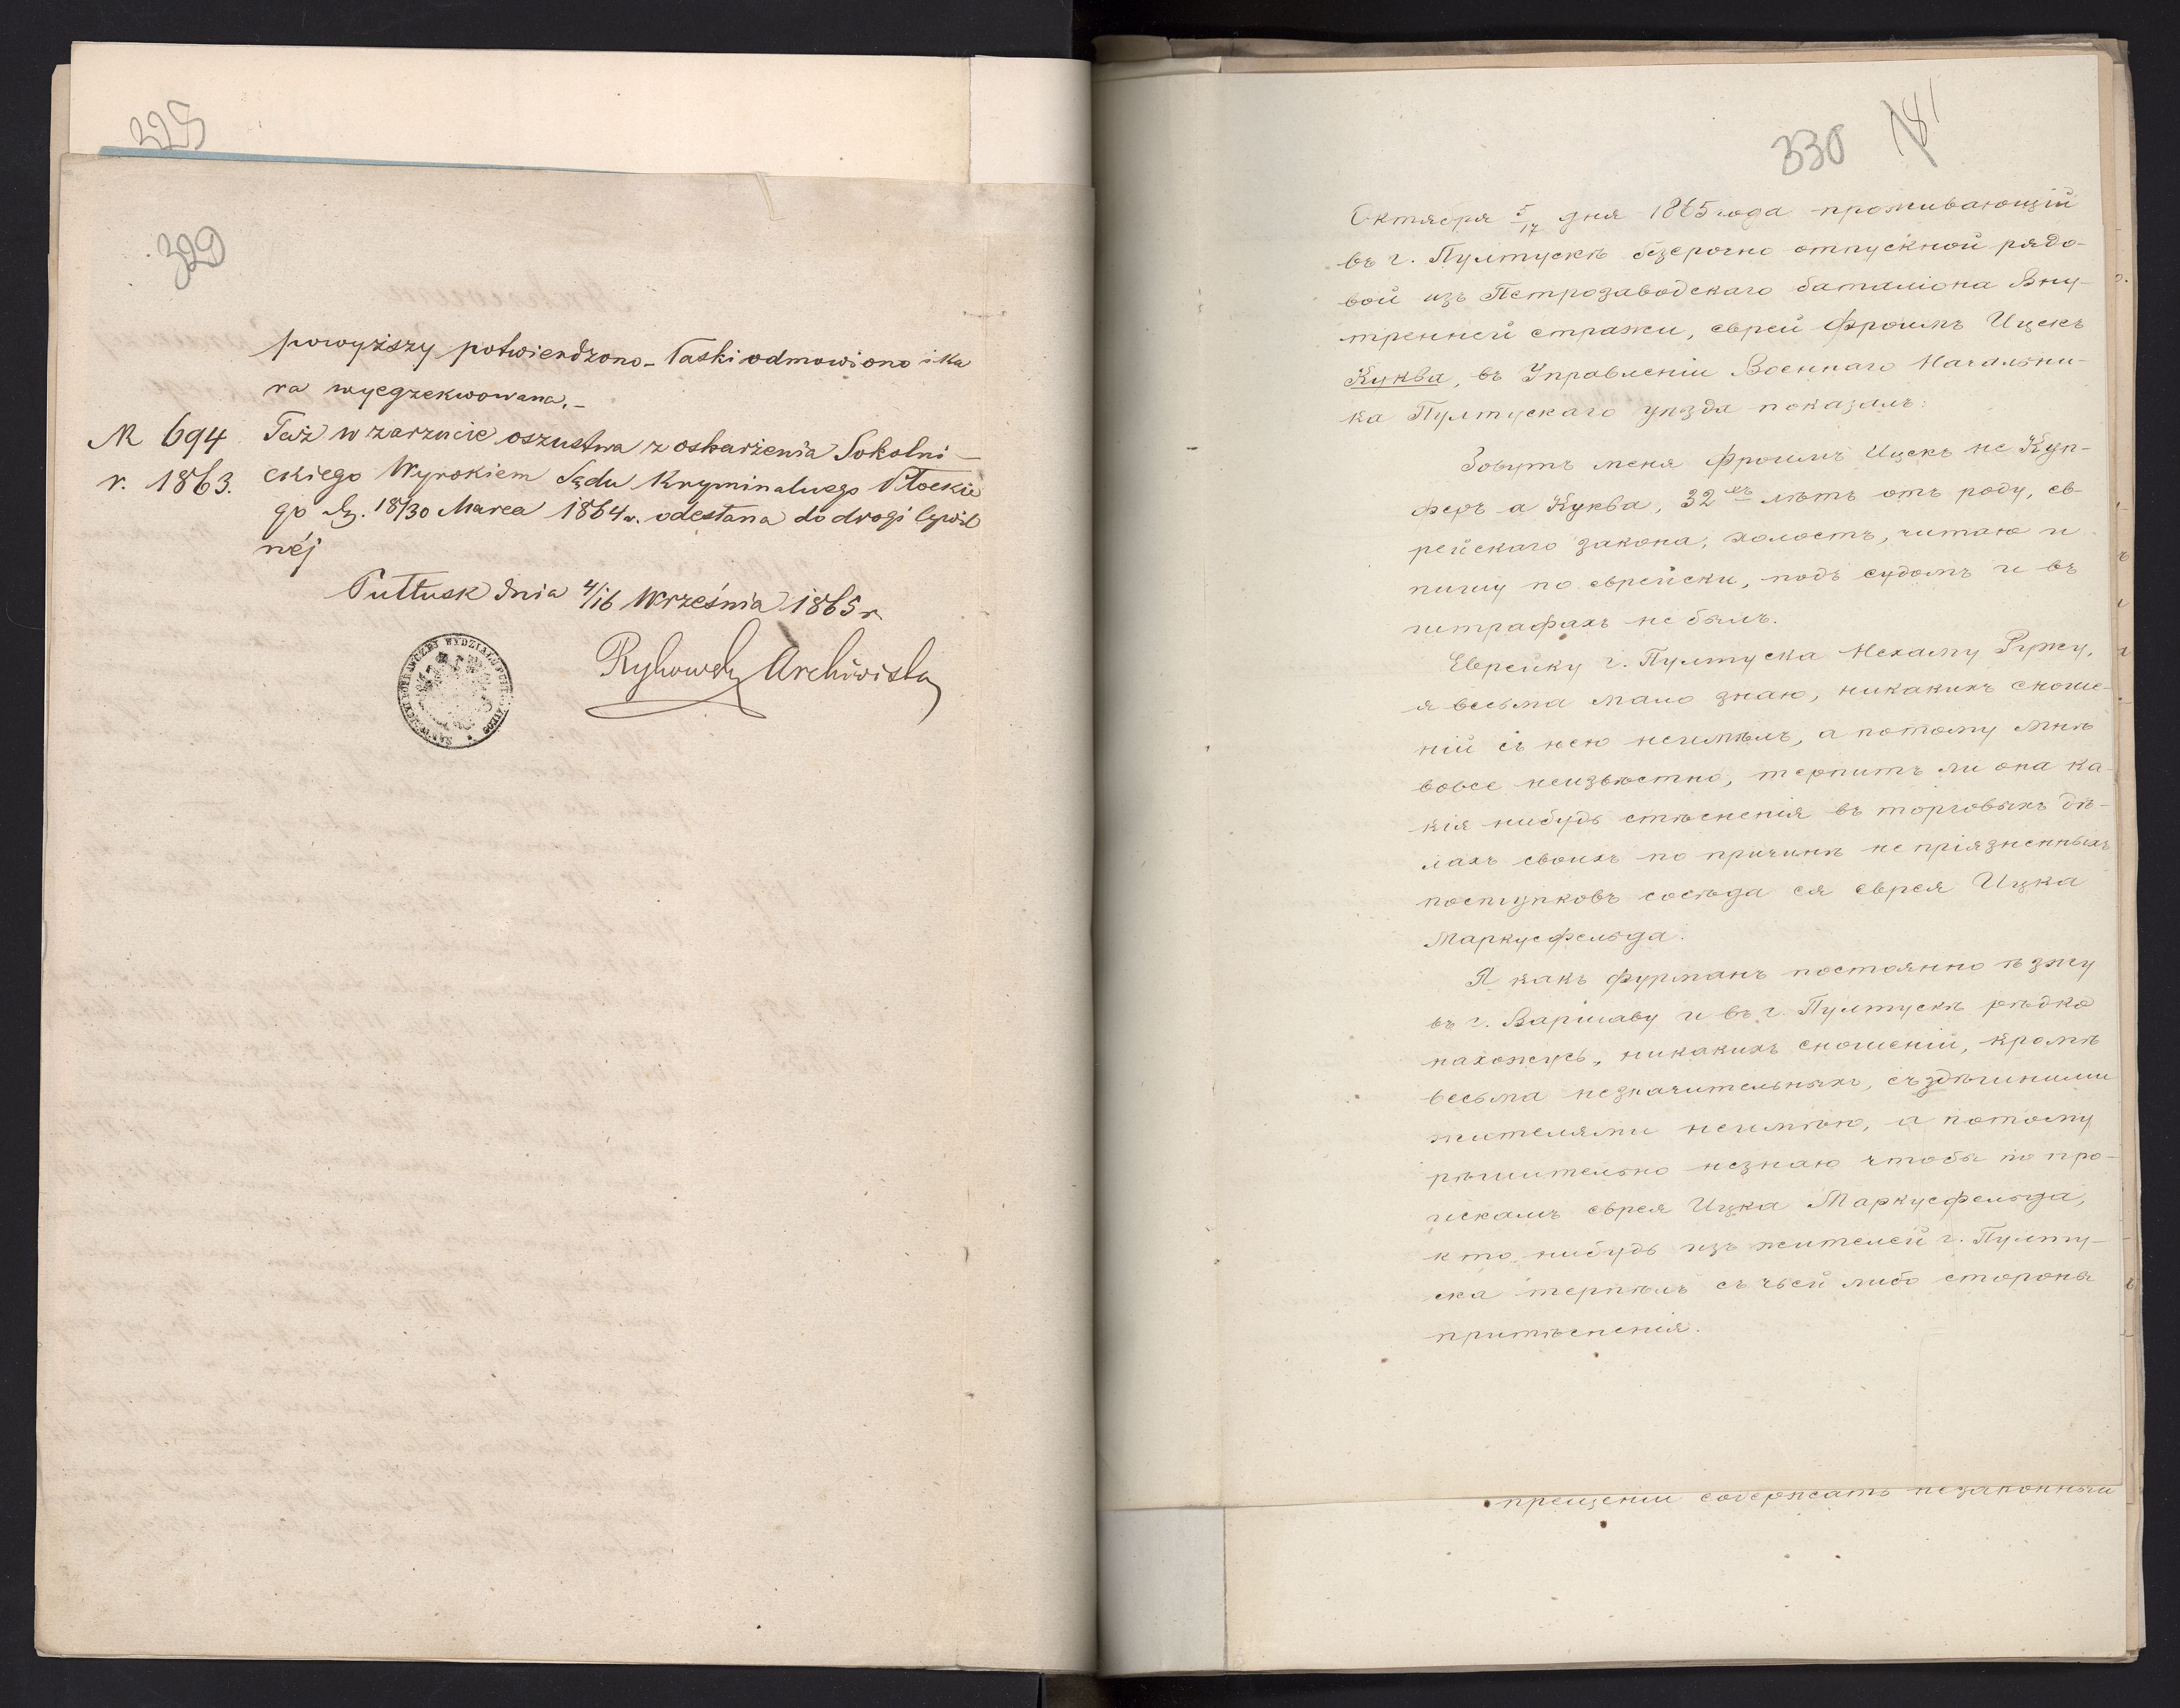 325
329
powyższy potwierdzono_ Łaski odmowiono i ka
ra wyegzekwowana._
N 694 Taż w zarzucie oszustwa z oskarżenia Sokolni-
r. 1863. ckiego Wyrokiem Sądu Kryminalnego Płockie
go dn. 18/30 Marca 1864 r. odesłana do drogi Cywil
néj
Pułtusk dnia 4/16 Września 1865 r
Archiwista
330 181
Октября 5/17 дня 1865 года проживающій
въ г. Пултускѣ безсрочно отпускной рядо-
вой изъ Петрозаводскаго баталіона Вну-
тренней стражи, еврей Фроимъ Ицекъ
Куква, въ Управленіи Военнаго Начальни-
ка Пултускаго уѣзда показалъ:
Зовутъ меня Фроимъ Ицекъ не Куп-
феръ а Куква, 32 хъ лѣтъ отъ роду, ев-
рейскаго закона, холостъ, читаю и
пишу по еврейски, подъ судомъ и въ
штрафахъ не былъ.
Еврейку г. Пултуска Нехаму Ружу,
я весьма мало знаю, никакихъ сноше-
ній съ нею неимѣлъ, а потому мнѣ
вовсе неизвѣстно, терпитъ ли она ка-
кія нибудь стѣсненія въ торговыхъ дѣ-
лахъ своихъ по причинѣ не пріязненныхъ
поступковъ сосѣда ея еврея Ицка
Маркусфельда.
Я какъ фурманъ постоянно ѣзжу
въ г. Варшаву и въ г. Пултускѣ рѣдко
нахожусь, никакихъ сношеній, кромѣ
весьма незначительныхъ, съ здѣшними
жителями неимѣю, а потому
рѣшительно незнаю чтобы по про-
искамъ еврея Ицка Маркусфельда,
кто нибудь изъ жителей г. Пулту-
ска терпѣлъ съ чьей либо стороны
притѣсненія.
прещеніи содержать незаконный